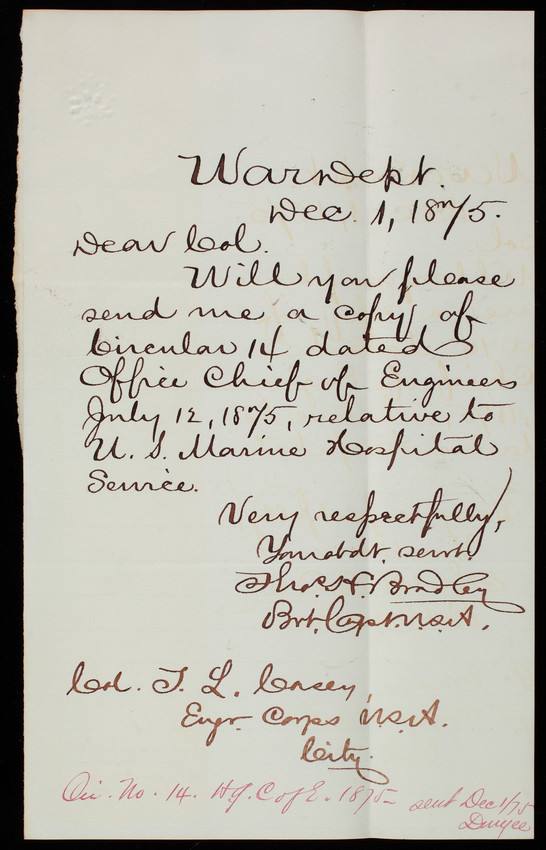 War Dept.
Dec. 1, 1875.
Dear Col.
Will you please
send me a copy of
Circular 14 dated
Office Chief of Engineers
July 12, 1875, relative to
U. S. Marine Hospital
Service.
Very respectfully,
Your obdt. servt.
Thos. H. Bradley
Bvt. Capt. U.S.A.
Col. T. L. Casey,
Engr. Corps U.S.A.
City.
Cir. No. 14. H.Q. C of E. 1875 - sent Dec 1/75